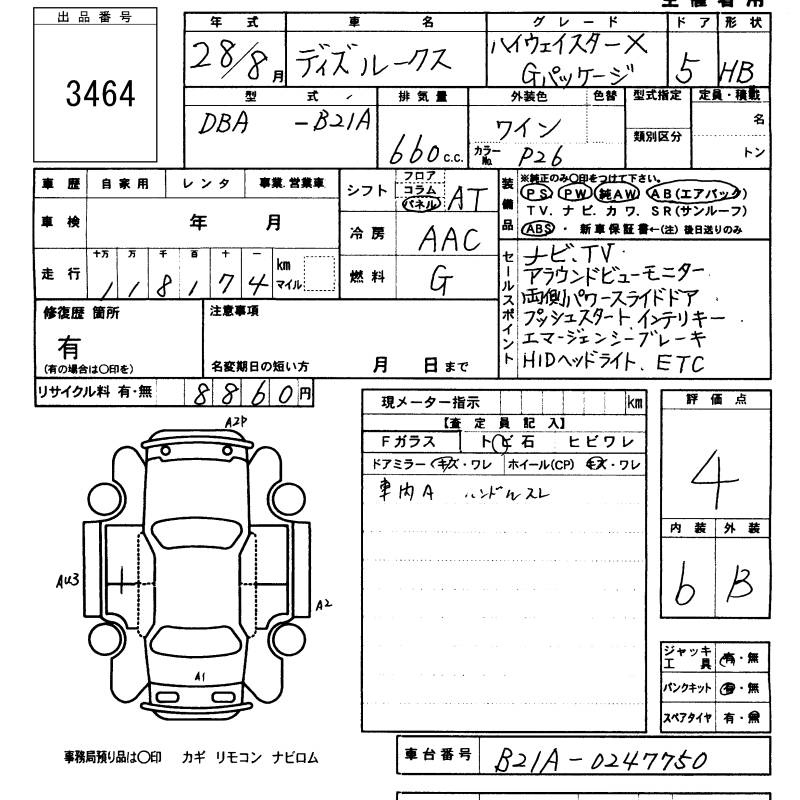 出品番号
3464
年 式 車 名 グレード ドア 形 状
28/8月 ディズルークス ハイウェイスターX
Gパッケージ 5 HB
型 式 排気量 外装色 色替 型式指定 定員・積載
DBA -B21A 660 c.c. ワイン 名
カラーNo. P26 類別区分 トン
車 歴 自家用 レンタ 事業.営業車
車 検 年 月
走 行 十万 万 千 百 十 一
1 1 8 1 7 4 km
マイル
シフト フロア
コラム
パネル AT
冷 房 AAC
燃 料 G
装備品 ※純正のみ〇印をつけて下さい。
PS PW 純AW AB(エアバック)
TV. ナビ. カワ. SR(サンルーフ)
ABS ・ 新車保証書←(注) 後日送りのみ
セールスポイント
ナビ、TV
アラウンドビューモニター
両側パワースライドドア
プッシュスタート、インテリキー
エマージェンシーブレーキ
HIDヘッドライト、ETC
修復歴 箇所
有
(有の場合は〇印を)
注意事項
名変期日の短い方 月 日まで
リサイクル料 有・無 8 8 6 0 円
現メーター指示 km
【査 定 員 記 入】
Fガラス トビ石 ヒビワレ
ドアミラー キズ・ワレ ホイール(CP) キズ・ワレ
車内A ハンドルスレ
評 価 点
4
内 装 外 装
b B
ジャッキ
工 具 有・無
パンクキット 有・無
スペアタイヤ 有・無
A2P
AU3
A2
A1
事務局預り品は〇印 カギ リモコン ナビロム
車台番号 B21A-0247750